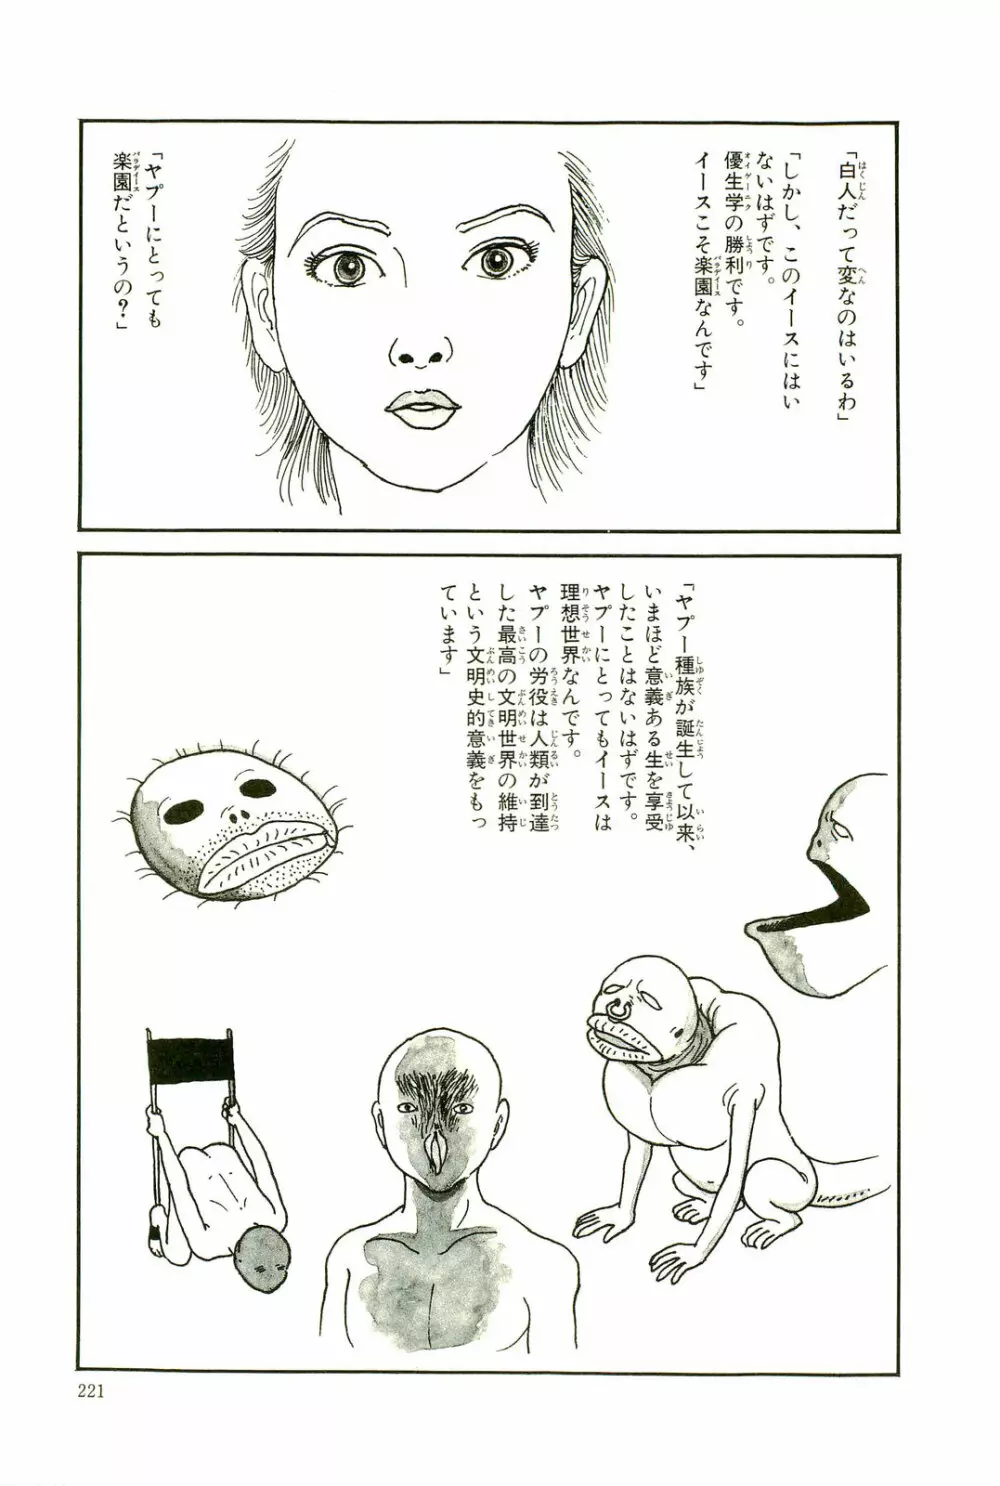 「白人だって変なのはいるわ」
「しかし、このイースにはい
ないはずです。
優生学の勝利です。
イースこそ楽園なんです」
「ヤプーにとっても
楽園だというの？」
「ヤプー種族が誕生して以来、
いまほど意義ある生を享受
したことはないはずです。
ヤプーにとってもイースは
理想世界なんです。
ヤプーの労役は人類が到達
した最高の文明世界の維持
という文明史的意義をもっ
ています」
221